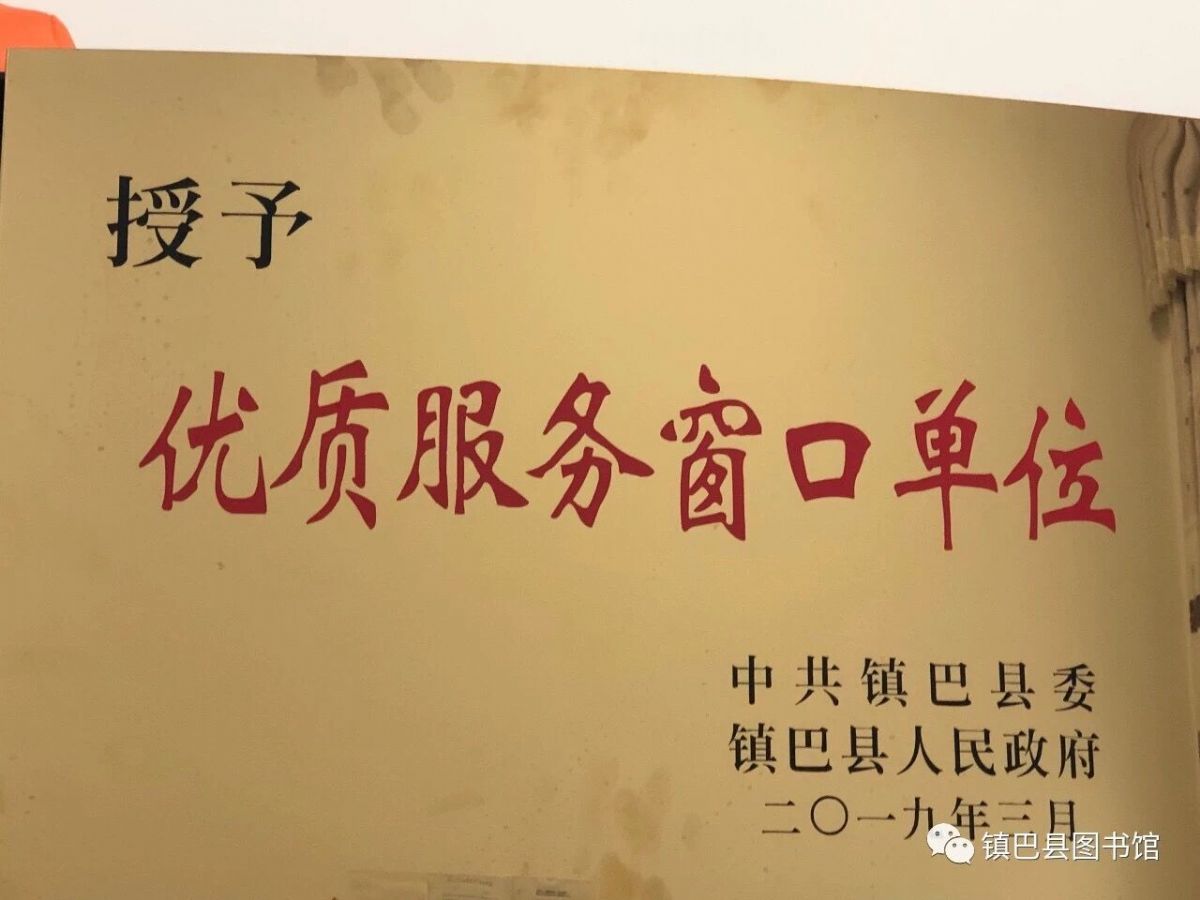 授予
优质服务窗口单位
中共镇巴县委
镇巴县人民政府
二〇一九年三月
镇巴县图书馆